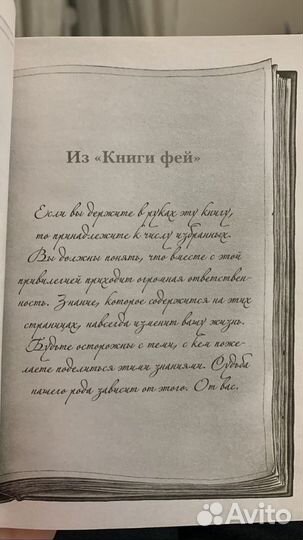 Из «Книги фей»
Если вы держите в руках эту книгу,
то принадлежите к числу избранных.
Вы должны понять, что вместе с этой
привилегией приходит огромная ответствен-
ность. Знание, которое содержится на этих
страницах, навсегда изменит вашу жизнь.
Будьте осторожны с теми, с кем поже-
лаете поделиться этими знаниями. Судьба
нашего рода зависит от этого. От вас.
Avito